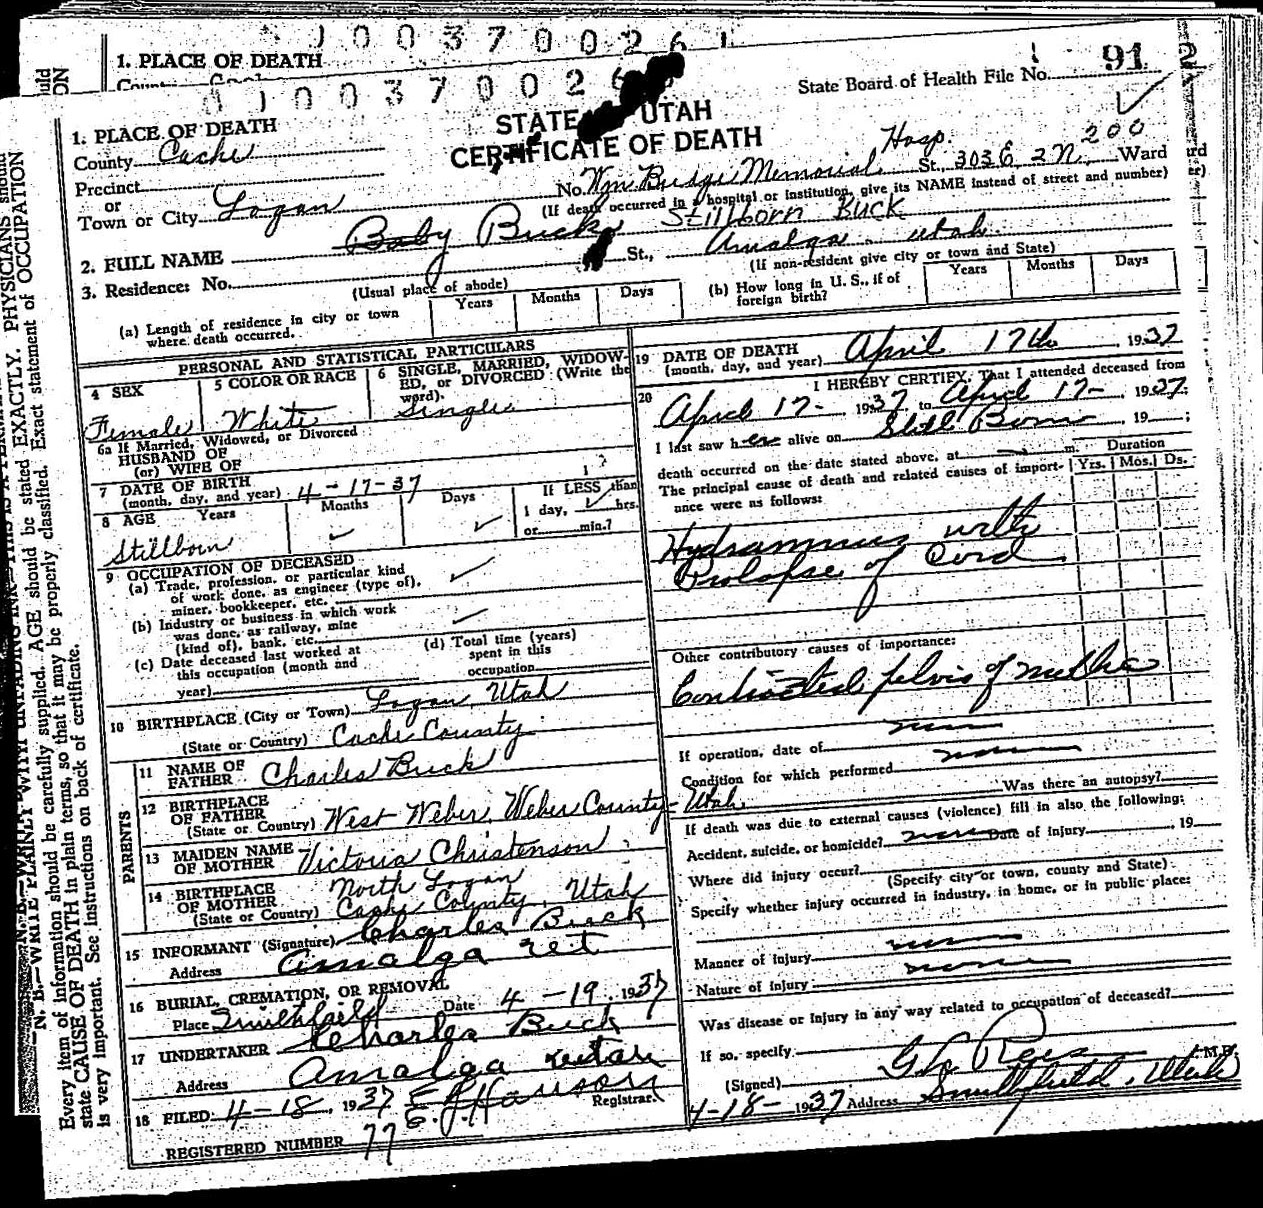 0 0 0 3 7 0 0 2 6 1
1. PLACE OF DEATH
County
0 1 0 0 3 7 0 0 2 6
State Board of Health File No. 91
STATE UTAH
CERTIFICATE OF DEATH
200
1. PLACE OF DEATH
County Cache
Precinct
or
Town or City Logan
No. Wm. Budge Memorial Hosp. St., 303 E 2 N Ward
(If death occurred in a hospital or institution, give its NAME instead of street and number)
2. FULL NAME Baby Buck Stillborn Buck
3. Residence: No. St., Amalga Utah
(Usual place of abode) (If non-resident give city or town and State)
(a) Length of residence in city or town where death occurred. Years Months Days
(b) How long in U. S., if of foreign birth? Years Months Days
PERSONAL AND STATISTICAL PARTICULARS
4 SEX Female
5 COLOR OR RACE White
6 SINGLE, MARRIED, WIDOWED, or DIVORCED (Write the word). Single
6a If Married, Widowed, or Divorced
HUSBAND OF
(or) WIFE OF
7 DATE OF BIRTH
(month, day, and year) 4-17-37
8 AGE Years Months Days If LESS than
1 day, hrs.
or min.?
Stillborn
9 OCCUPATION OF DECEASED
(a) Trade, profession, or particular kind
of work done, as engineer (type of),
miner, bookkeeper, etc.
(b) Industry or business in which work
was done, as railway, mine
(kind of), bank, etc.
(c) Date deceased last worked at
this occupation (month and
year)
(d) Total time (years)
spent in this
occupation
10 BIRTHPLACE (City or Town) Logan, Utah
(State or Country) Cache County
PARENTS
11 NAME OF
FATHER Charles Buck
12 BIRTHPLACE
OF FATHER
(State or Country) West Weber, Weber County-Utah
13 MAIDEN NAME
OF MOTHER Victoria Christenson
14 BIRTHPLACE
OF MOTHER
(State or Country) North Logan
Cache County, Utah
15 INFORMANT (Signature) Charles Buck
Address Amalga
16 BURIAL, CREMATION, OR REMOVAL
Place Smithfield Date 4-19. 1937
17 UNDERTAKER Charles Buck
Address Amalga Utah
18 FILED: 4-18, 1937 E. J. Hanson
Registrar.
REGISTERED NUMBER 77
19 DATE OF DEATH
(month, day, and year) April 17th, 1937
20 I HEREBY CERTIFY, That I attended deceased from
April 17-, 1937, to April 17-, 1937:
I last saw her alive on Still Born, 19 ;
death occurred on the date stated above, at m. Duration
The principal cause of death and related causes of importance were as follows: Yrs. Mos. Ds.
Hydramnius with
Prolapse of Cord
Other contributory causes of importance:
Contracted pelvis of mother
If operation, date of none
Condition for which performed none
Was there an autopsy?
If death was due to external causes (violence) fill in also the following:
Accident, suicide, or homicide? none Date of injury , 19
Where did injury occur?
(Specify city or town, county and State)
Specify whether injury occurred in industry, in home, or in public place:
none
Manner of injury
Nature of injury none
Was disease or injury in any way related to occupation of deceased?
If so, specify
(Signed) G. L. Rees M.D.
4-18-1937 Address Smithfield, Utah
N. B.—WRITE PLAINLY WITH UNFADING INK—THIS IS A
Every item of information should be carefully supplied. AGE should be stated EXACTLY. PHYSICIANS should
state CAUSE OF DEATH in plain terms, so that it may be properly classified. Exact statement of OCCUPATION
is very important. See instructions on back of certificate.